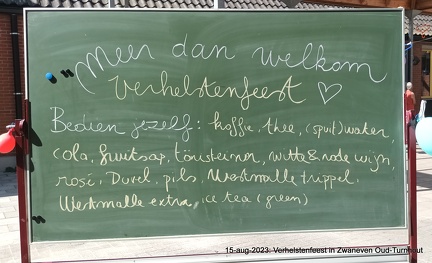 Meer dan welkom
Verhelstenfeest ♡
Bedien jezelf: koffie, thee, (spuit)water,
cola, fruitsap, tönissteiner, witte & rode wijn,
rosé, Duvel, pils, Westmalle trippel,
Westmalle extra, ice tea (green)
15-aug-2023: Verhelstenfeest in Zwaneven Oud-Turnhout